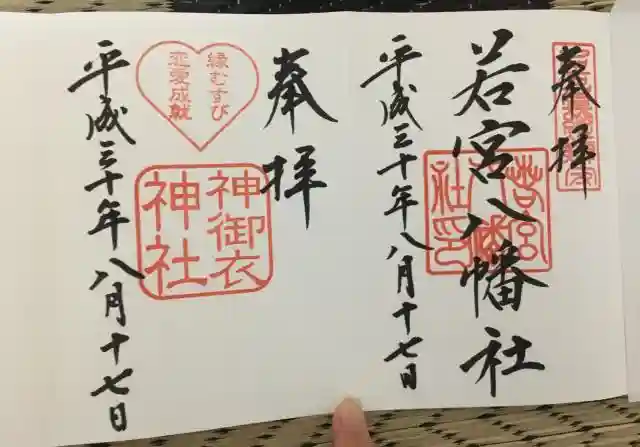 奉拝
若宮八幡社
若宮八幡社印
平成三十年八月十七日
奉拝
縁むすび
恋愛成就
神御衣
神社
平成三十年八月十七日